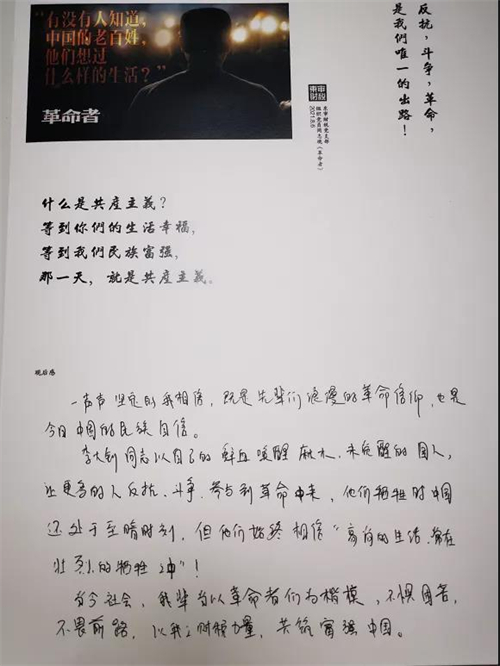 “有没有人知道，
中国的老百姓，
他们想过
什么样的生活？”
革命者
反抗，斗争，革命，
是我们唯一的出路！
东审财税
东审财税党支部
组织党员同志观《革命者》
2021.8.5
什么是共産主義？
等到你們的生活幸福，
等到我們民族富强，
那一天，就是共産主義。
观后感
一声声坚定的我相信，既是先辈们浪漫的革命信仰，也是
今日中国的民族自信。
李大钊同志以自己的鲜血唤醒麻木、未觉醒的国人，
让更多的人反抗、斗争、参与到革命中来，他们牺牲时中国
还处于至暗时刻，但他们始终相信“高尚的生活，常在
壮烈的牺牲中”！
当今社会，我辈当以革命者们为楷模，不惧困苦，
不畏前路，以我之财税力量，共筑富强中国。